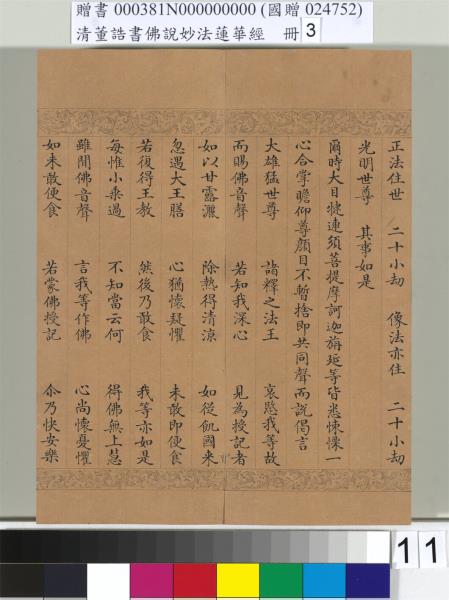 贈書 000381N000000000 (國贈 024752)
清董誥書佛說妙法蓮華經 冊 3
正法住世 二十小劫 像法亦住 二十小劫
光明世尊 其事如是
爾時大目揵連須菩提摩訶迦旃延等皆悉悚慄一
心合掌瞻仰尊顏目不暫捨即共同聲而說偈言
大雄猛世尊 諸釋之法王 哀愍我等故
而賜佛音聲 若知我深心 見為授記者
如以甘露灑 除熱得清涼 如從飢國來
忽遇大王膳 心猶懷疑懼 未敢即便食
若復得王教 然後乃敢食 我等亦如是
每惟小乘過 不知當云何 得佛無上慧
雖聞佛音聲 言我等作佛 心尚懷憂懼
如未敢便食 若蒙佛授記 尒乃快安樂
11